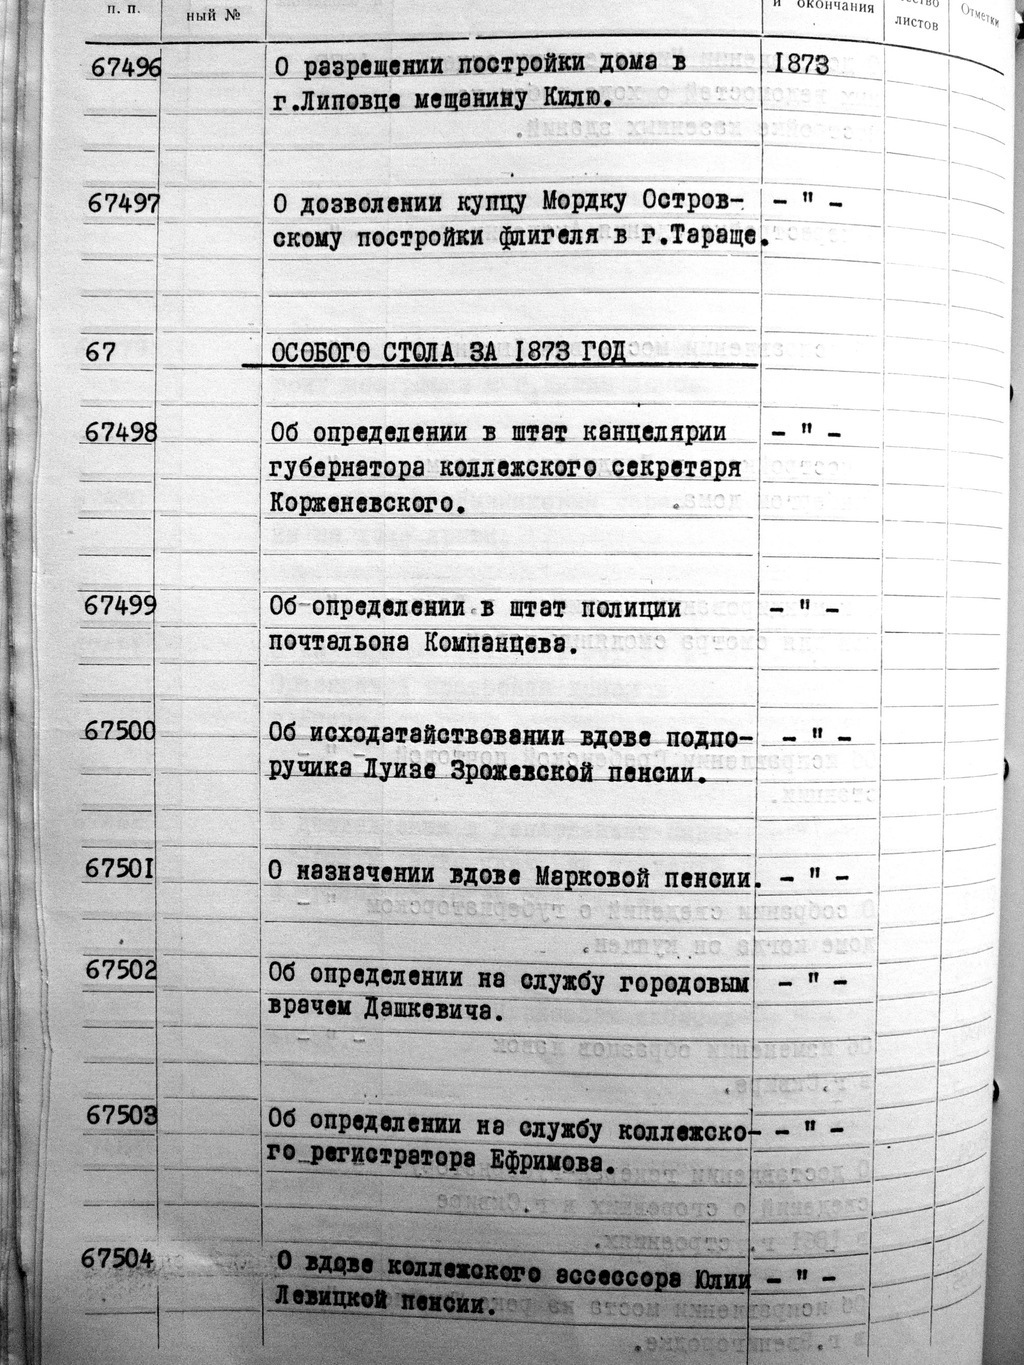 п. п.
ный №
и окончания
ество
листов
Отметки
67496 О разрещении постройки дома в 1873
г.Липовце мещанину Килю.
67497 О дозволении купцу Мордку Остров- - " -
скому постройки флигеля в г.Тараще.
67 ОСОБОГО СТОЛА ЗА 1873 ГОД
67498 Об определении в штат канцелярии - " -
губернатора коллежского секретаря
Корженевского.
67499 Об определении в штат полиции - " -
почтальона Компанцева.
67500 Об исходатайствовании вдове подпо- - " -
ручика Луизе Зрожевской пенсии.
67501 О назначении вдове Марковой пенсии. - " -
67502 Об определении на службу городовым - " -
врачем Дашкевича.
67503 Об определении на службу коллежско- - " -
го регистратора Ефримова.
67504 О вдове коллежского ассессора Юлии - " -
Левицкой пенсии.